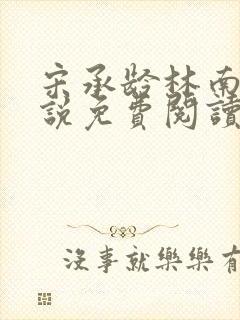 宋承龄林南
說免費閱讀
沒事就樂樂有